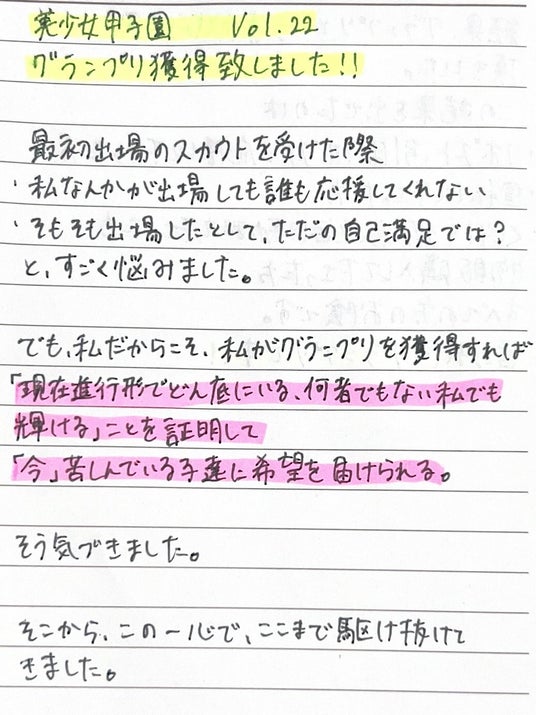 美少女甲子園 Vol.22
グランプリ獲得致しました!!
最初出場のスカウトを受けた際
・私なんかが出場しても誰も応援してくれない
・そもそも出場したとして、ただの自己満足では?
と、すごく悩みました。
でも、私だからこそ、私がグランプリを獲得すれば
「現在進行形でどん底にいる、何者でもない私でも
輝ける」ことを証明して
「今」苦しんでいる子達に希望を届けられる。
そう気づきました。
そこから、この一心で、ここまで駆け抜けて
きました。